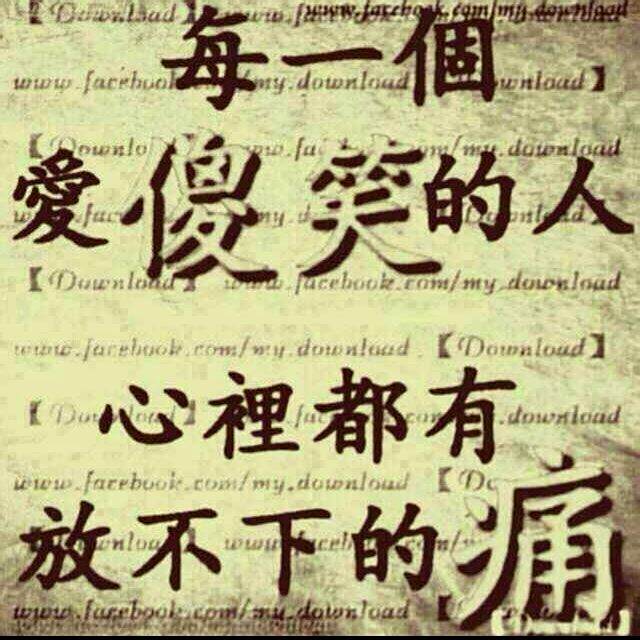 【Download】 www.facebook.com/my.download
每一個
www.facebook.com/my.download】
【Download】 www.facebook.com/my.download
愛傻笑的人
【Download】 www.facebook.com/my.download
www.facebook.com/my.download 【Download】
心裡都有
【Download】 www.facebook.com/my.download
www.facebook.com/my.download 【Download】
放不下的痛
www.facebook.com/my.download 【Download】